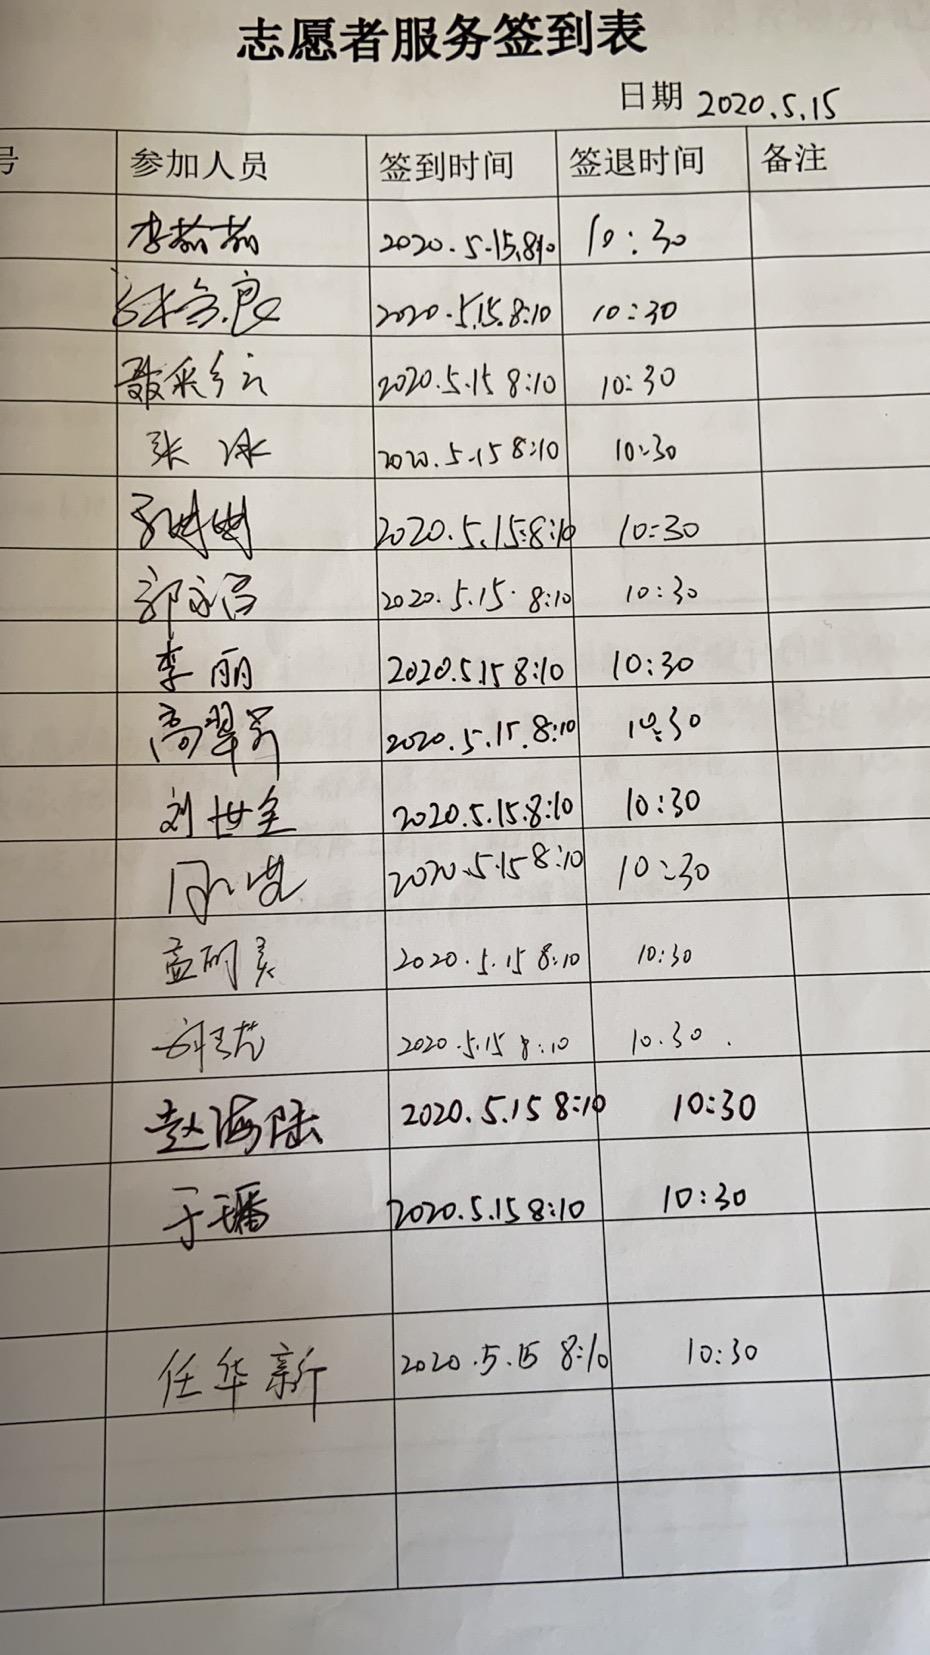 志愿者服务签到表
日期 2020.5.15
号 参加人员 签到时间 签退时间 备注
李茹茹 2020.5.15.8:10 10:30
2020.5.15.8:10 10:30
聂彩云 2020.5.15 8:10 10:30
张冰 2020.5.15 8:10 10:30
2020.5.15.8:10 10:30
郭永昌 2020.5.15. 8:10 10:30
李丽 2020.5.15 8:10 10:30
高翠芹 2020.5.15.8:10 10:30
刘世全 2020.5.15.8:10 10:30
2020.5.15 8:10 10:30
孟明 2020.5.15 8:10 10:30
2020.5.15 8:10 10.30.
赵海陆 2020.5.15 8:10 10:30
于璠 2020.5.15 8:10 10:30
任华新 2020.5.15 8:10 10:30